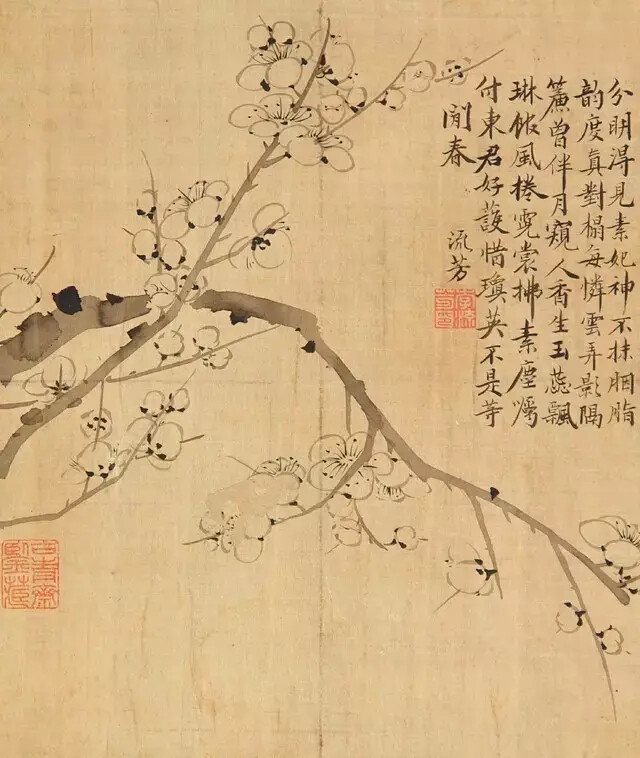 分明淂見素妃神不抹胭脂
韵度真對榻每憐雲弄影隔
簾曾伴月窺人香生玉蕊飄
琳館風捲霓裳拂素塵嘱
付東君好護惜瓊英不是等
閒春
流芳
李流芳印